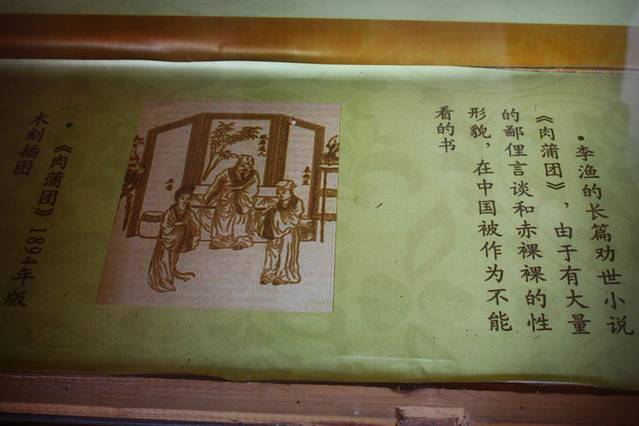 •李渔的长篇劝世小说
《肉蒲团》，由于有大量
的鄙俚言谈和赤裸裸的性
形貌，在中国被作为不能
看的书
•《肉蒲团》1894年版
木刻插图